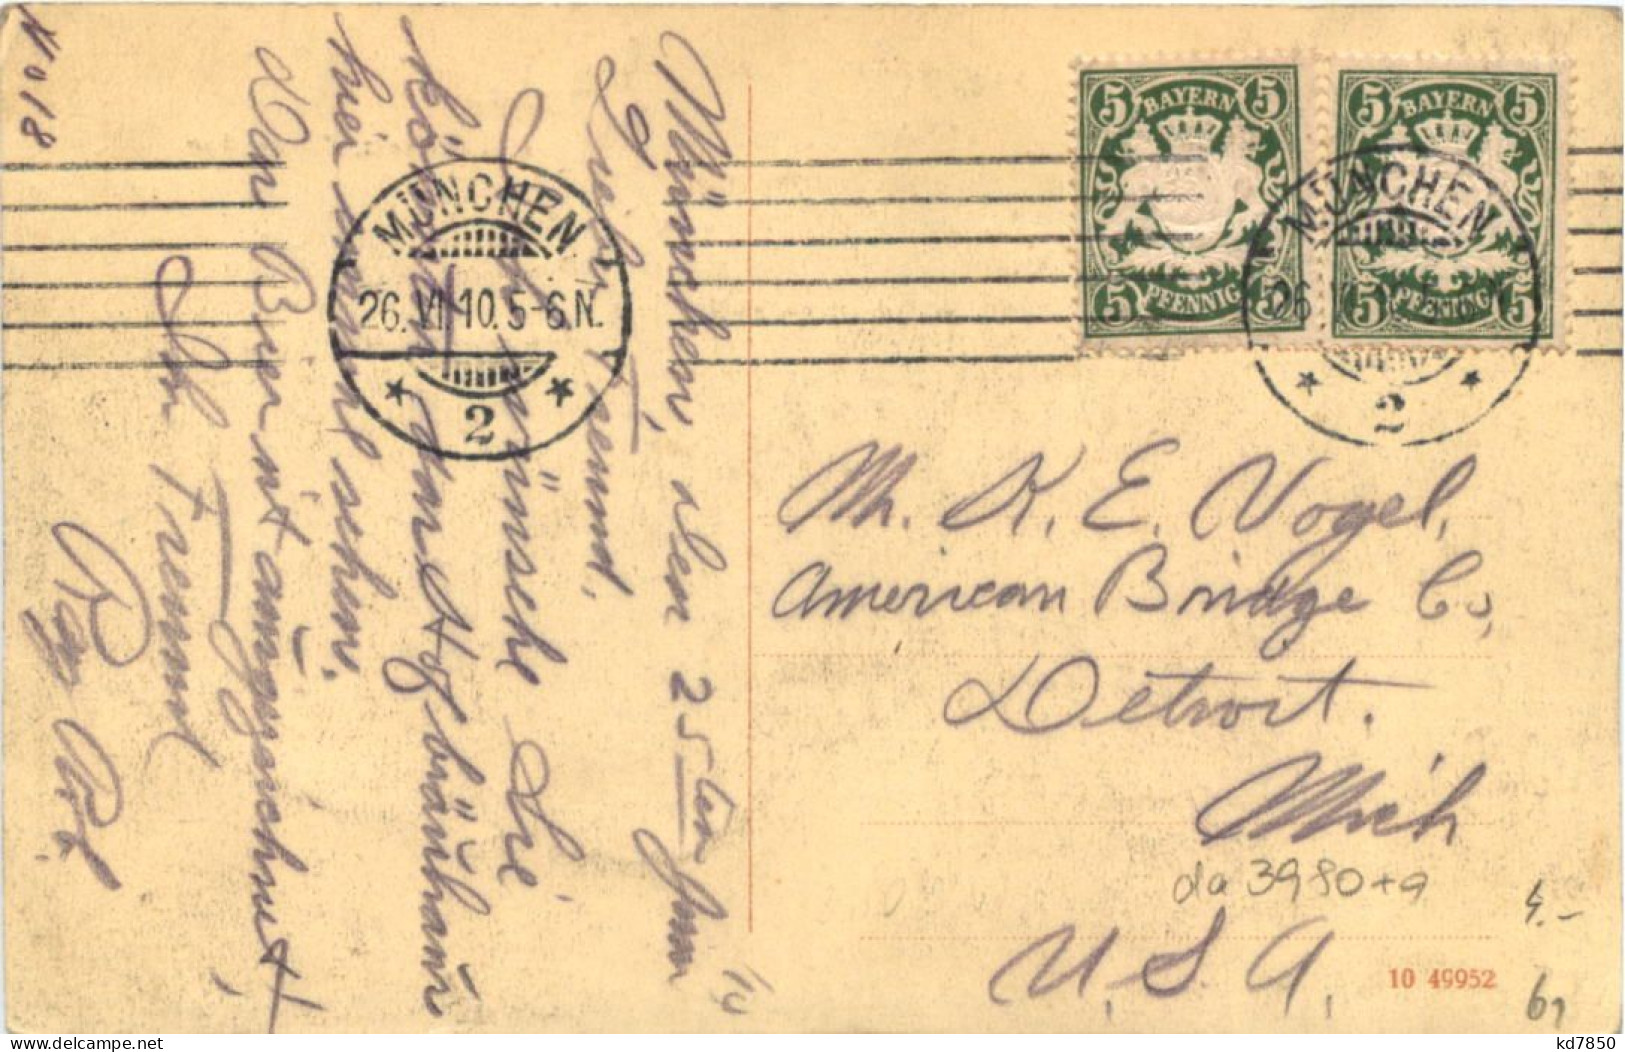 No 18
München, den 25ten Juni 10
Lieber Freund,
Ich wünsche Sie
könnten das Hofbräuhaus
hier einmal sehen.
Das Bier ist ausgezeichnet,
Ihr Freund
Ray
MÜNCHEN
26. VI. 10. 5-6 N.
2
5 BAYERN 5
5 PFENNIG 5
5 BAYERN 5
5 PFENNIG 5
MÜNCHEN
2
Mr. K. E. Vogel,
American Bridge Co,
Detroit.
Mich
da 3980+a
U. S. A.
10 49952
kd7850